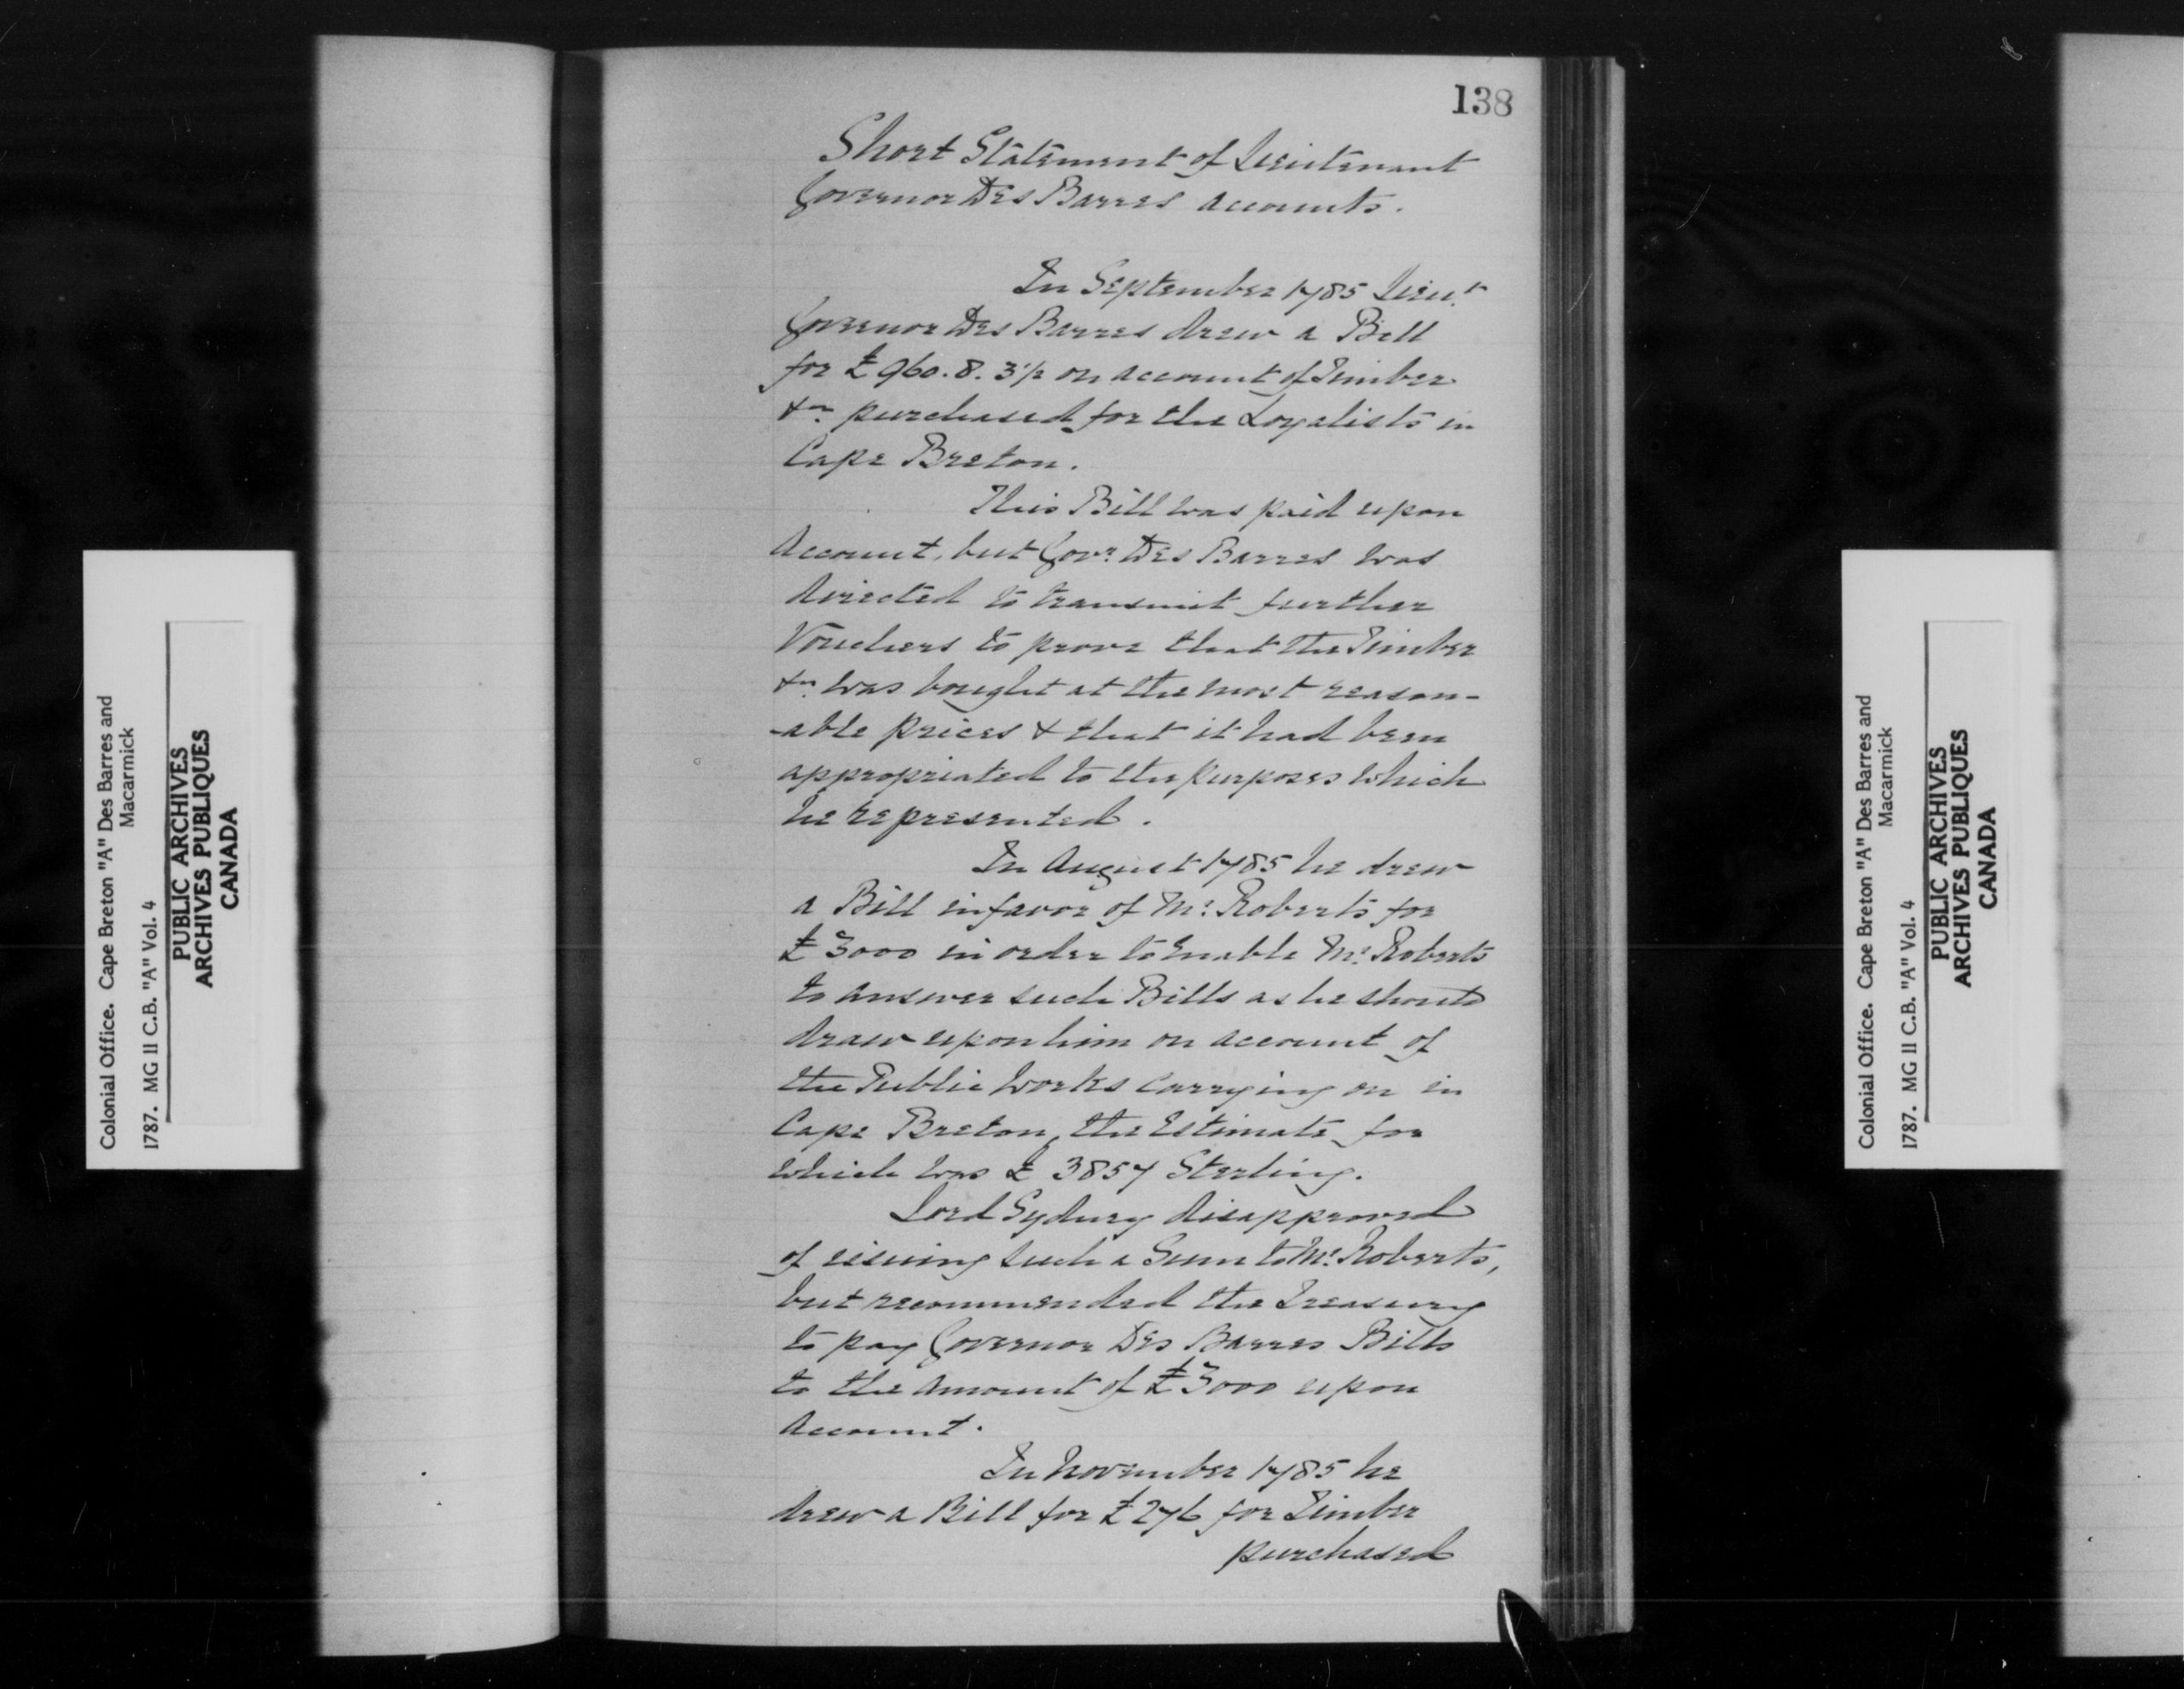 138
Short Statement of Lieutenant
Governor Des Barres accounts.
In September 1785 Lieu.t
Governor Des Barres drew a Bill
for £960.8.3½ on account of Timber
&ca purchased for the Loyalists in
Cape Breton.
This Bill was paid upon
Account, but Govr. Des Barres was
directed to transmit further
Vouchers to prove that the Timber
&ca was bought at the most reason-
-able prices & that it had been
appropriated to the purposes which
he represented.
In August 1785 he drew
a Bill in favor of Mr. Roberts for
£3000 in order to enable Mr. Roberts
to answer such Bills as he should
draw upon him on account of
the Public Works carrying on in
Cape Breton, the Estimate for
which was £ 3857 Sterling.
Lord Sydney disapproved
of issuing such a Sum to Mr. Roberts,
but recommended the Treasury
to pay Governor Des Barres Bills
to the amount of £3000 upon
Account.
In November 1785 he
drew a Bill for £276 for Timber
purchased
Colonial Office. Cape Breton "A" Des Barres and
Macarmick
1787. MG 11 C.B. "A" Vol. 4
PUBLIC ARCHIVES
ARCHIVES PUBLIQUES
CANADA
Colonial Office. Cape Breton "A" Des Barres and
Macarmick
1787. MG 11 C.B. "A" Vol. 4
PUBLIC ARCHIVES
ARCHIVES PUBLIQUES
CANADA